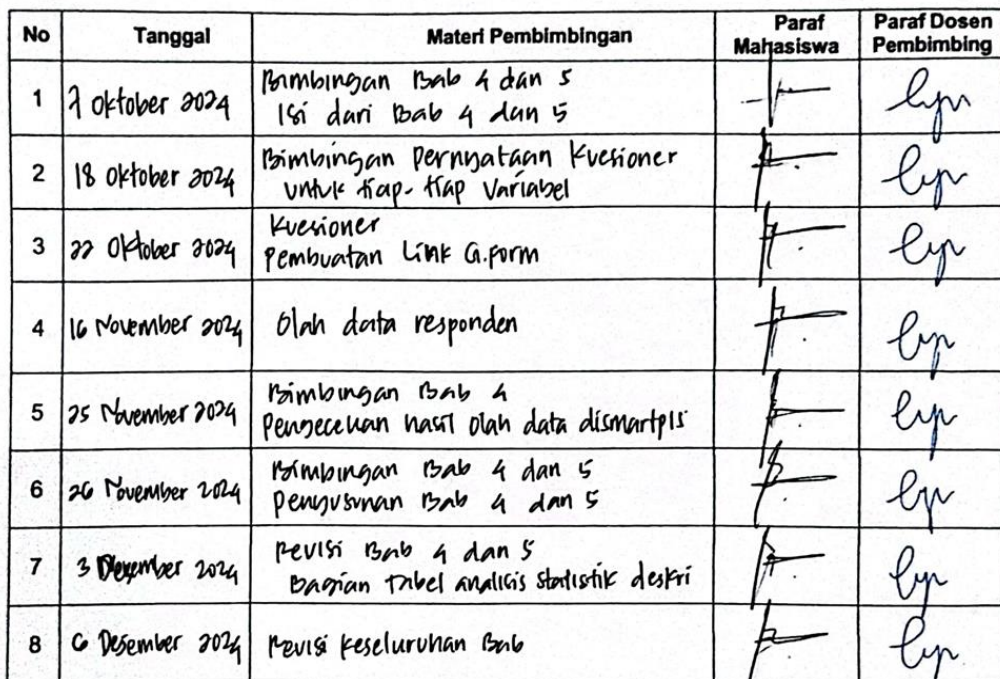 No Tanggal Materi Pembimbingan Paraf Mahasiswa Paraf Dosen Pembimbing
1 7 Oktober 2024 Bimbingan Bab 4 dan 5
Isi dari Bab 4 dan 5
2 18 Oktober 2024 Bimbingan Pernyataan Kuesioner
untuk tiap-tiap Variabel
3 22 Oktober 2024 Kuesioner
Pembuatan Link G.Form
4 16 November 2024 Olah data responden
5 25 November 2024 Bimbingan Bab 4
Pengecekan hasil olah data dismartpls
6 26 November 2024 Bimbingan Bab 4 dan 5
Penyusunan Bab 4 dan 5
7 3 Desember 2024 Revisi Bab 4 dan 5
Bagian Tabel analisis statistik deskri
8 6 Desember 2024 Revisi Keseluruhan Bab